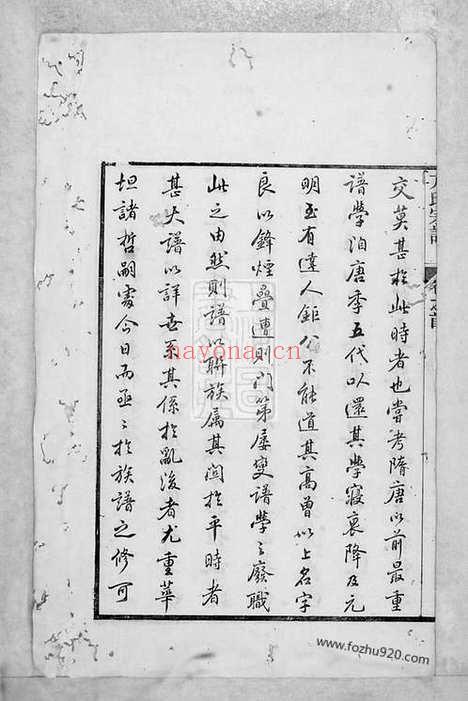 交莫甚於此時者也嘗考隋唐以前最重
譜學洎唐季五代以還其學寖衰降及元
明至有達人鉅公不能道其高曾以上名字
良以鋒煙疊遭則門第屢變譜學之廢職
此之由然則譜以聯族属其関於平時者
甚大譜以詳世系其係於亂後者尤重華
坦諸哲嗣處今日而亟〻於族譜之修可
nayona.cn
www.fozhu920.com